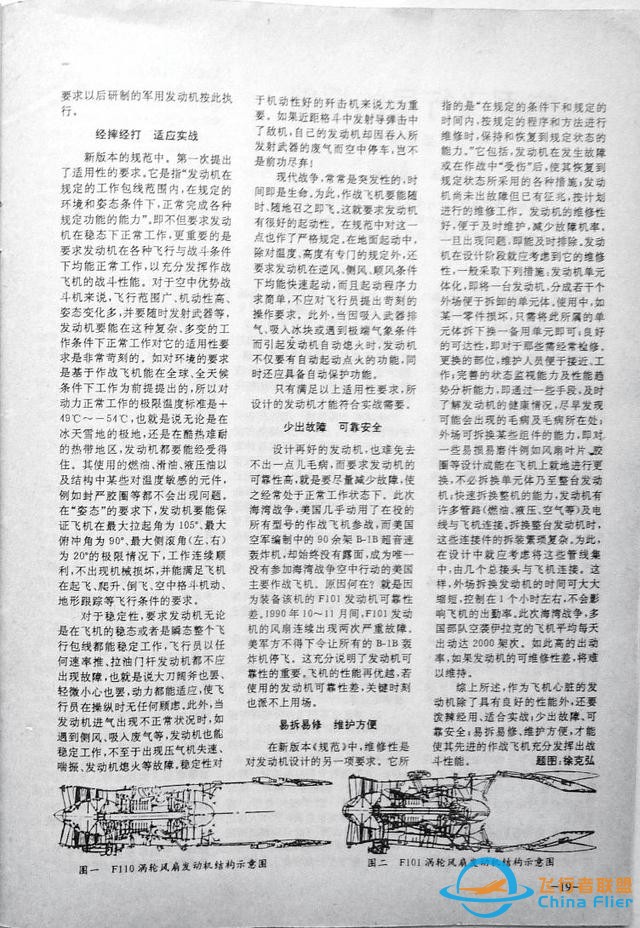 要求以后研制的军用发动机按此执
行。
经摔经打 适应实战
新版本的规范中。第一次提出
了适用性的要求。它是指“发动机在
规定的工作包线范围内,在规定的
环境和姿态条件下,正常完成各种
规定功能的能力”。即不但要求发动
机在稳态下正常工作,更重要的是
要求发动机在各种飞行与战斗条件
下均能正常工作,以充分发挥作战
飞机的战斗性能。对于空中优势战
斗机来说,飞行范围广、机动性高、
姿态变化多,并要随时发射武器等,
发动机要能在这种复杂、多变的工
作条件下正常工作对它的适用性要
求是非常苛刻的。如对环境的要求
是基于作战飞机能在全球、全天候
条件下工作为前提提出的,所以对
动力正常工作的极限温度标准是+
49℃~-54℃,也就是说无论是在
冰天雪地的极地,还是在酷热难耐
的热带地区,发动机都要能经受得
住。其使用的燃油、滑油、液压油以
及结构中某些对温度敏感的元件,
例如封严胶圈等都不会出现问题。
在“姿态”的要求下,发动机要能保
证飞机在最大拉起角为105°、最大
俯冲角为90°、最大侧滚角(左、右)
为20°的极限情况下,工作连续顺
利,不出现机械损坏,并能满足飞机
在起飞、爬升、倒飞、空中格斗机动、
地形跟踪等飞行条件的要求。
对于稳定性,要求发动机无论
是在飞机的稳态或者是瞬态整个飞
行包线都能稳定工作,飞行员以任
何速率推、拉油门杆发动机都不应
出现故障,也就是说大刀阔斧也罢、
轻微小心也罢,动力都能适应,使飞
行员在操纵时无任何顾虑。此外,当
发动机进气出现不正常状况时,如
遇到侧风、吸入废气等,发动机也能
稳定工作,不至于出现压气机失速、
喘振、发动机熄火等故障。稳定性对
于机动性好的歼击机来说尤为重
要。如果近距格斗中发射导弹击中
了敌机,自己的发动机却因吞入所
发射武器的废气而空中停车,岂不
是前功尽弃!
现代战争,常常是突发性的,时
间即是生命。为此,作战飞机要能随
时、随地召之即飞。这就要求发动机
有很好的起动性。在规范中对这一
点也作了严格规定。在地面起动中,
除对温度、高度有专门的规定外,还
要求发动机在逆风、侧风、顺风条件
下均能快速起动,而且起动程序力
求简单,不应对飞行员提出苛刻的
操作要求。此外,当因吸入武器排
气、吸入冰块或遇到极端气象条件
而引起发动机自动熄火时,发动机
不仅要有自动起动点火的功能,同
时还应具备自动保护功能。
只有满足以上适用性要求,所
设计的发动机才能符合实战需要。
少出故障 可靠安全
设计再好的发动机,也难免去
不出一点儿毛病,而要求发动机的
可靠性高,就是要尽量减少故障,使
之经常处于正常工作状态下。此次
海湾战争,美国几乎动用了在役的
所有型号的作战飞机参战,而美国
空军编制中的90余架B-1B超音速
轰炸机,却始终没有露面,成为唯一
没有参加海湾战争空中行动的美国
主要作战飞机。原因何在?就是因
为装备该机的F101发动机可靠性
差。1990年10~11月间,F101发动
机的风扇连续出现两次严重故障。
美军方不得下令让所有的B-1B轰
炸机停飞。这充分说明了发动机可
靠性的重要。飞机的性能再优越,若
使用的发动机可靠性差,关键时刻
也派不上用场。
易拆易修 维护方便
在新版本《规范》中,维修性是
对发动机设计的另一项要求。它所
指的是“在规定的条件下和规定的
时间内,按规定的程序和方法进行
维修时,保持和恢复到规定状态的
能力。”它包括,发动机在发生故障
或在作战中“受伤”后,使其恢复到
规定状态所采用的各种措施;发动
机尚未出故障但已有征兆,按计划
进行的维修工作。发动机的维修性
好,便于及时维护,减少故障机率。
一旦出现问题,即能及时排除。发动
机在设计阶段就应考虑到它的维修
性,一般采取下列措施:发动机单元
体化,即将一台发动机,分成若干个
外场便于拆卸的单元体。使用中,如
某一零件损坏,只需将此所属的单
元体拆下换一备用单元即可;良好
的可达性,即对于那些需经常检修、
更换的部位,维护人员便于接近、工
作;完善的状态监视能力及性能趋
势分析能力,即通过一些手段,及时
了解发动机的健康情况,尽早发现
可能会出现的毛病及毛病所在处;
外场可拆换某些组件的能力,即对
一些易损易磨件例如风扇叶片、胶
圈等设计成能在飞机上就地进行更
换,不必拆换单元体乃至整台发动
机;快速拆换整机的能力,发动机有
许多管路(燃油、液压、空气等)及电
线与飞机连接。拆换整台发动机时,
这些连接件的拆装繁琐复杂。为此,
在设计中就应考虑将这些管线集
中,由几个总接头与飞机连接。这
样,外场拆换发动机的时间可大大
缩短,控制在1个小时左右,不会影
响飞机的出勤率。此次海湾战争,多
国部队空袭伊拉克的飞机平均每天
出动达2000架次。如此高的出动
率,如果发动机的可维修性差,将难
以维持。
综上所述,作为飞机心脏的发
动机除了具有良好的性能外,还要
泼辣经用、适合实战;少出故障、可
靠安全;易拆易修、维护方便,才能
使其先进的作战飞机充分发挥出战
斗性能。 题图:徐克弘
图一 F110涡轮风扇发动机结构示意图
图二 F101涡轮风扇发动机结构示意图
—19—
飞行者联盟
China Flier